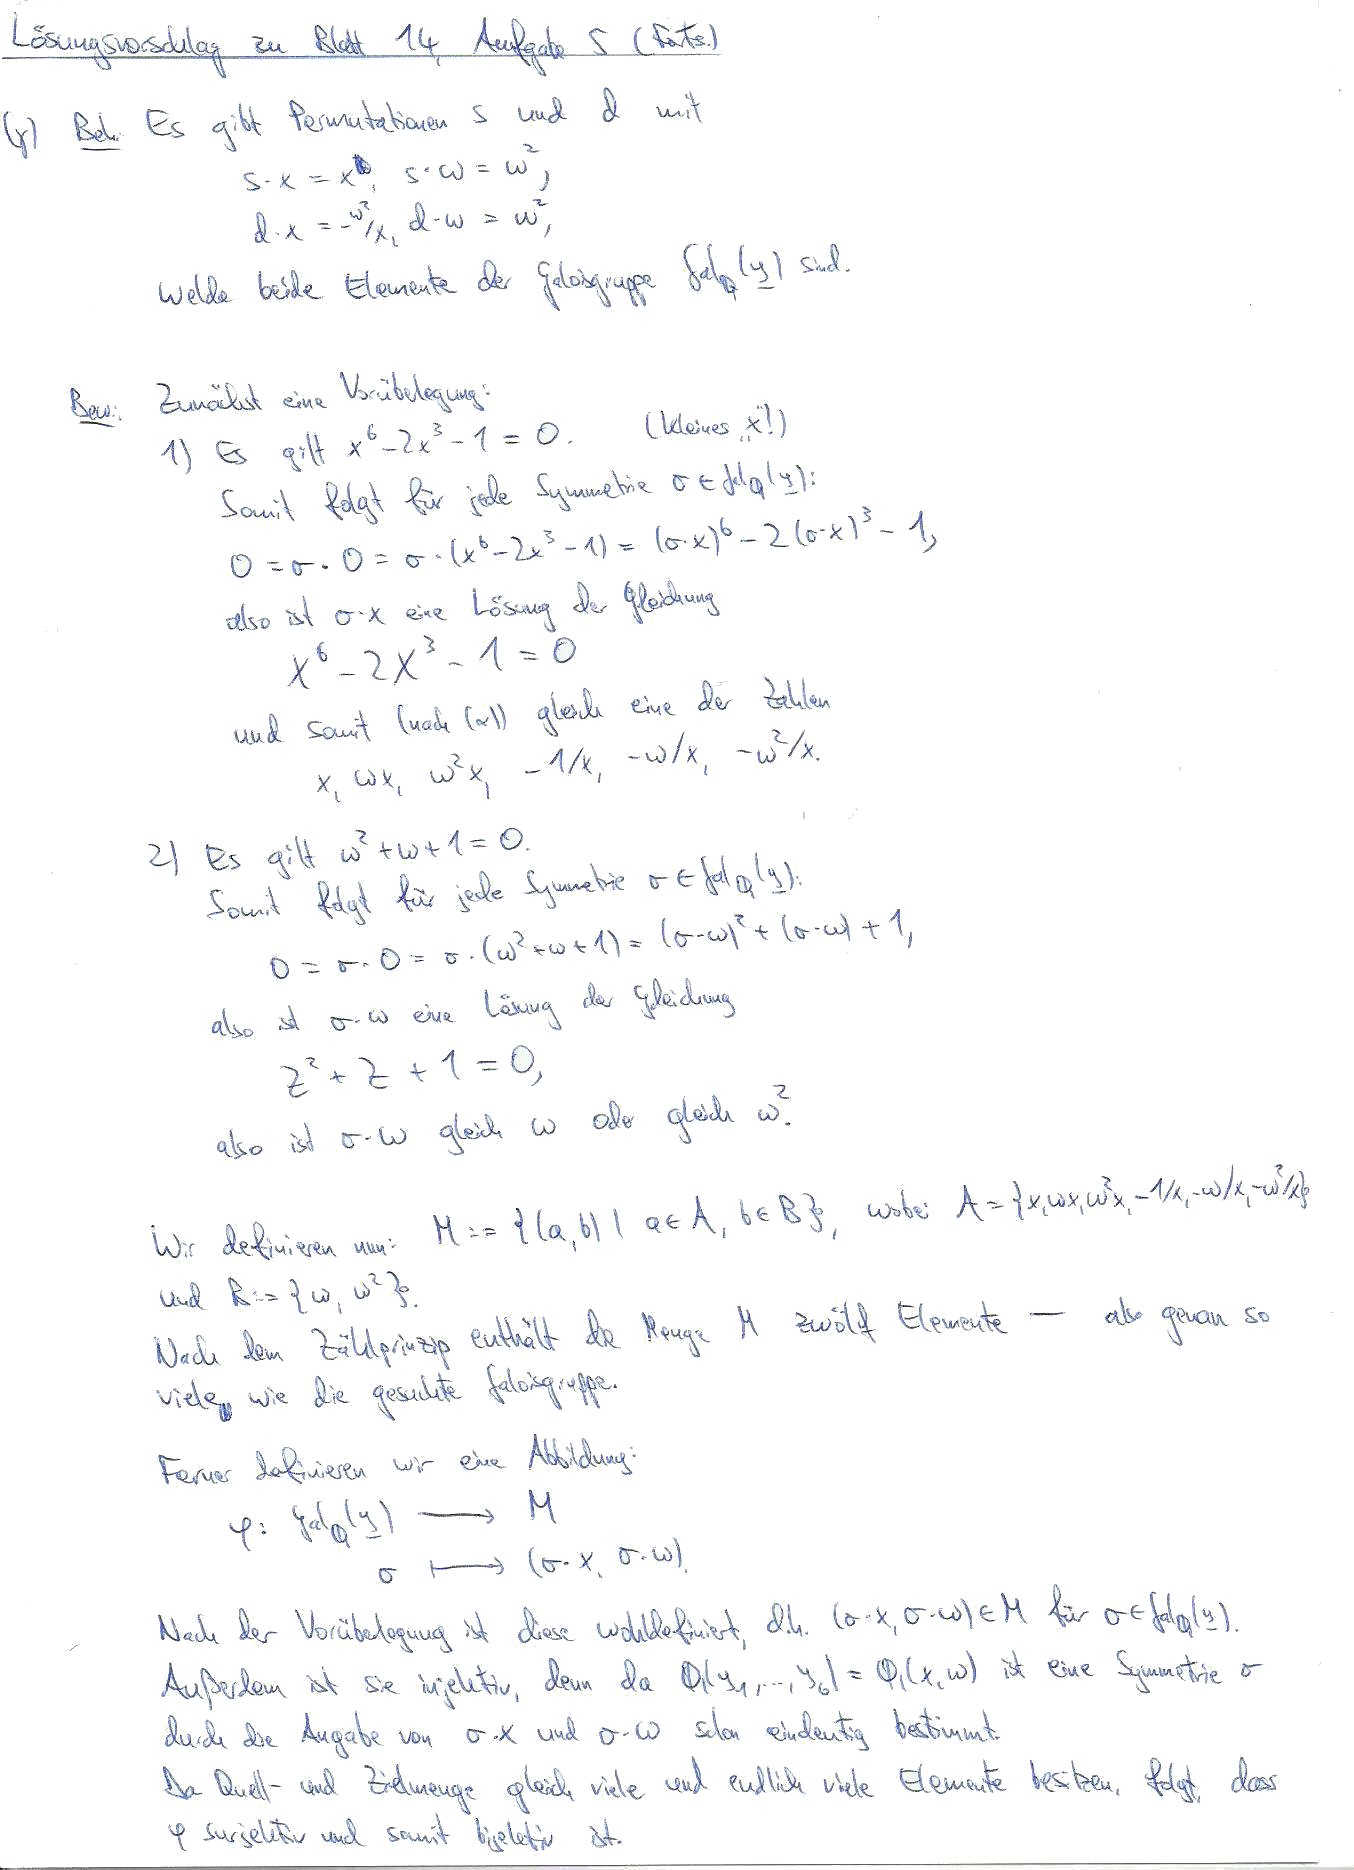 Lösungsvorschlag zu Blatt 14, Aufgabe 5 (Forts.)
(γ) Beh.: Es gibt Permutationen s und d mit
s·x = x, s·ω = ω²,
d·x = -ω²/x, d·ω = ω²,
welche beide Elemente der Galoisgruppe Gal_ℚ(y) sind.
Bew.: Zunächst eine Vorüberlegung:
1) Es gilt x⁶ - 2x³ - 1 = 0. (kleines „x“!)
Somit folgt für jede Symmetrie σ ∈ Gal_ℚ(y):
0 = σ·0 = σ·(x⁶ - 2x³ - 1) = (σ·x)⁶ - 2(σ·x)³ - 1,
also ist σ·x eine Lösung der Gleichung
X⁶ - 2X³ - 1 = 0
und somit (nach (α)) gleich eine der Zahlen
x, ωx, ω²x, -1/x, -ω/x, -ω²/x.
2) Es gilt ω² + ω + 1 = 0.
Somit folgt für jede Symmetrie σ ∈ Gal_ℚ(y):
0 = σ·0 = σ·(ω² + ω + 1) = (σ·ω)² + (σ·ω) + 1,
also ist σ·ω eine Lösung der Gleichung
Z² + Z + 1 = 0,
also ist σ·ω gleich ω oder gleich ω².
Wir definieren nun: M := {(a, b) | a ∈ A, b ∈ B}, wobei A = {x, ωx, ω²x, -1/x, -ω/x, -ω²/x}
und B := {ω, ω²}.
Nach dem Zählprinzip enthält die Menge M zwölf Elemente — also genau so
viele, wie die gesuchte Galoisgruppe.
Ferner definieren wir eine Abbildung:
φ: Gal_ℚ(y) ⟶ M
σ ⟼ (σ·x, σ·ω).
Nach der Vorüberlegung ist diese wohldefiniert, d.h. (σ·x, σ·ω) ∈ M für σ ∈ Gal_ℚ(y).
Außerdem ist sie injektiv, denn da ℚ(y₁, ..., y₆) = ℚ(x, ω) ist eine Symmetrie σ
durch die Angabe von σ·x und σ·ω schon eindeutig bestimmt.
Da Quell- und Zielmenge gleich viele und endlich viele Elemente besitzen, folgt, dass
φ surjektiv und somit bijektiv ist.